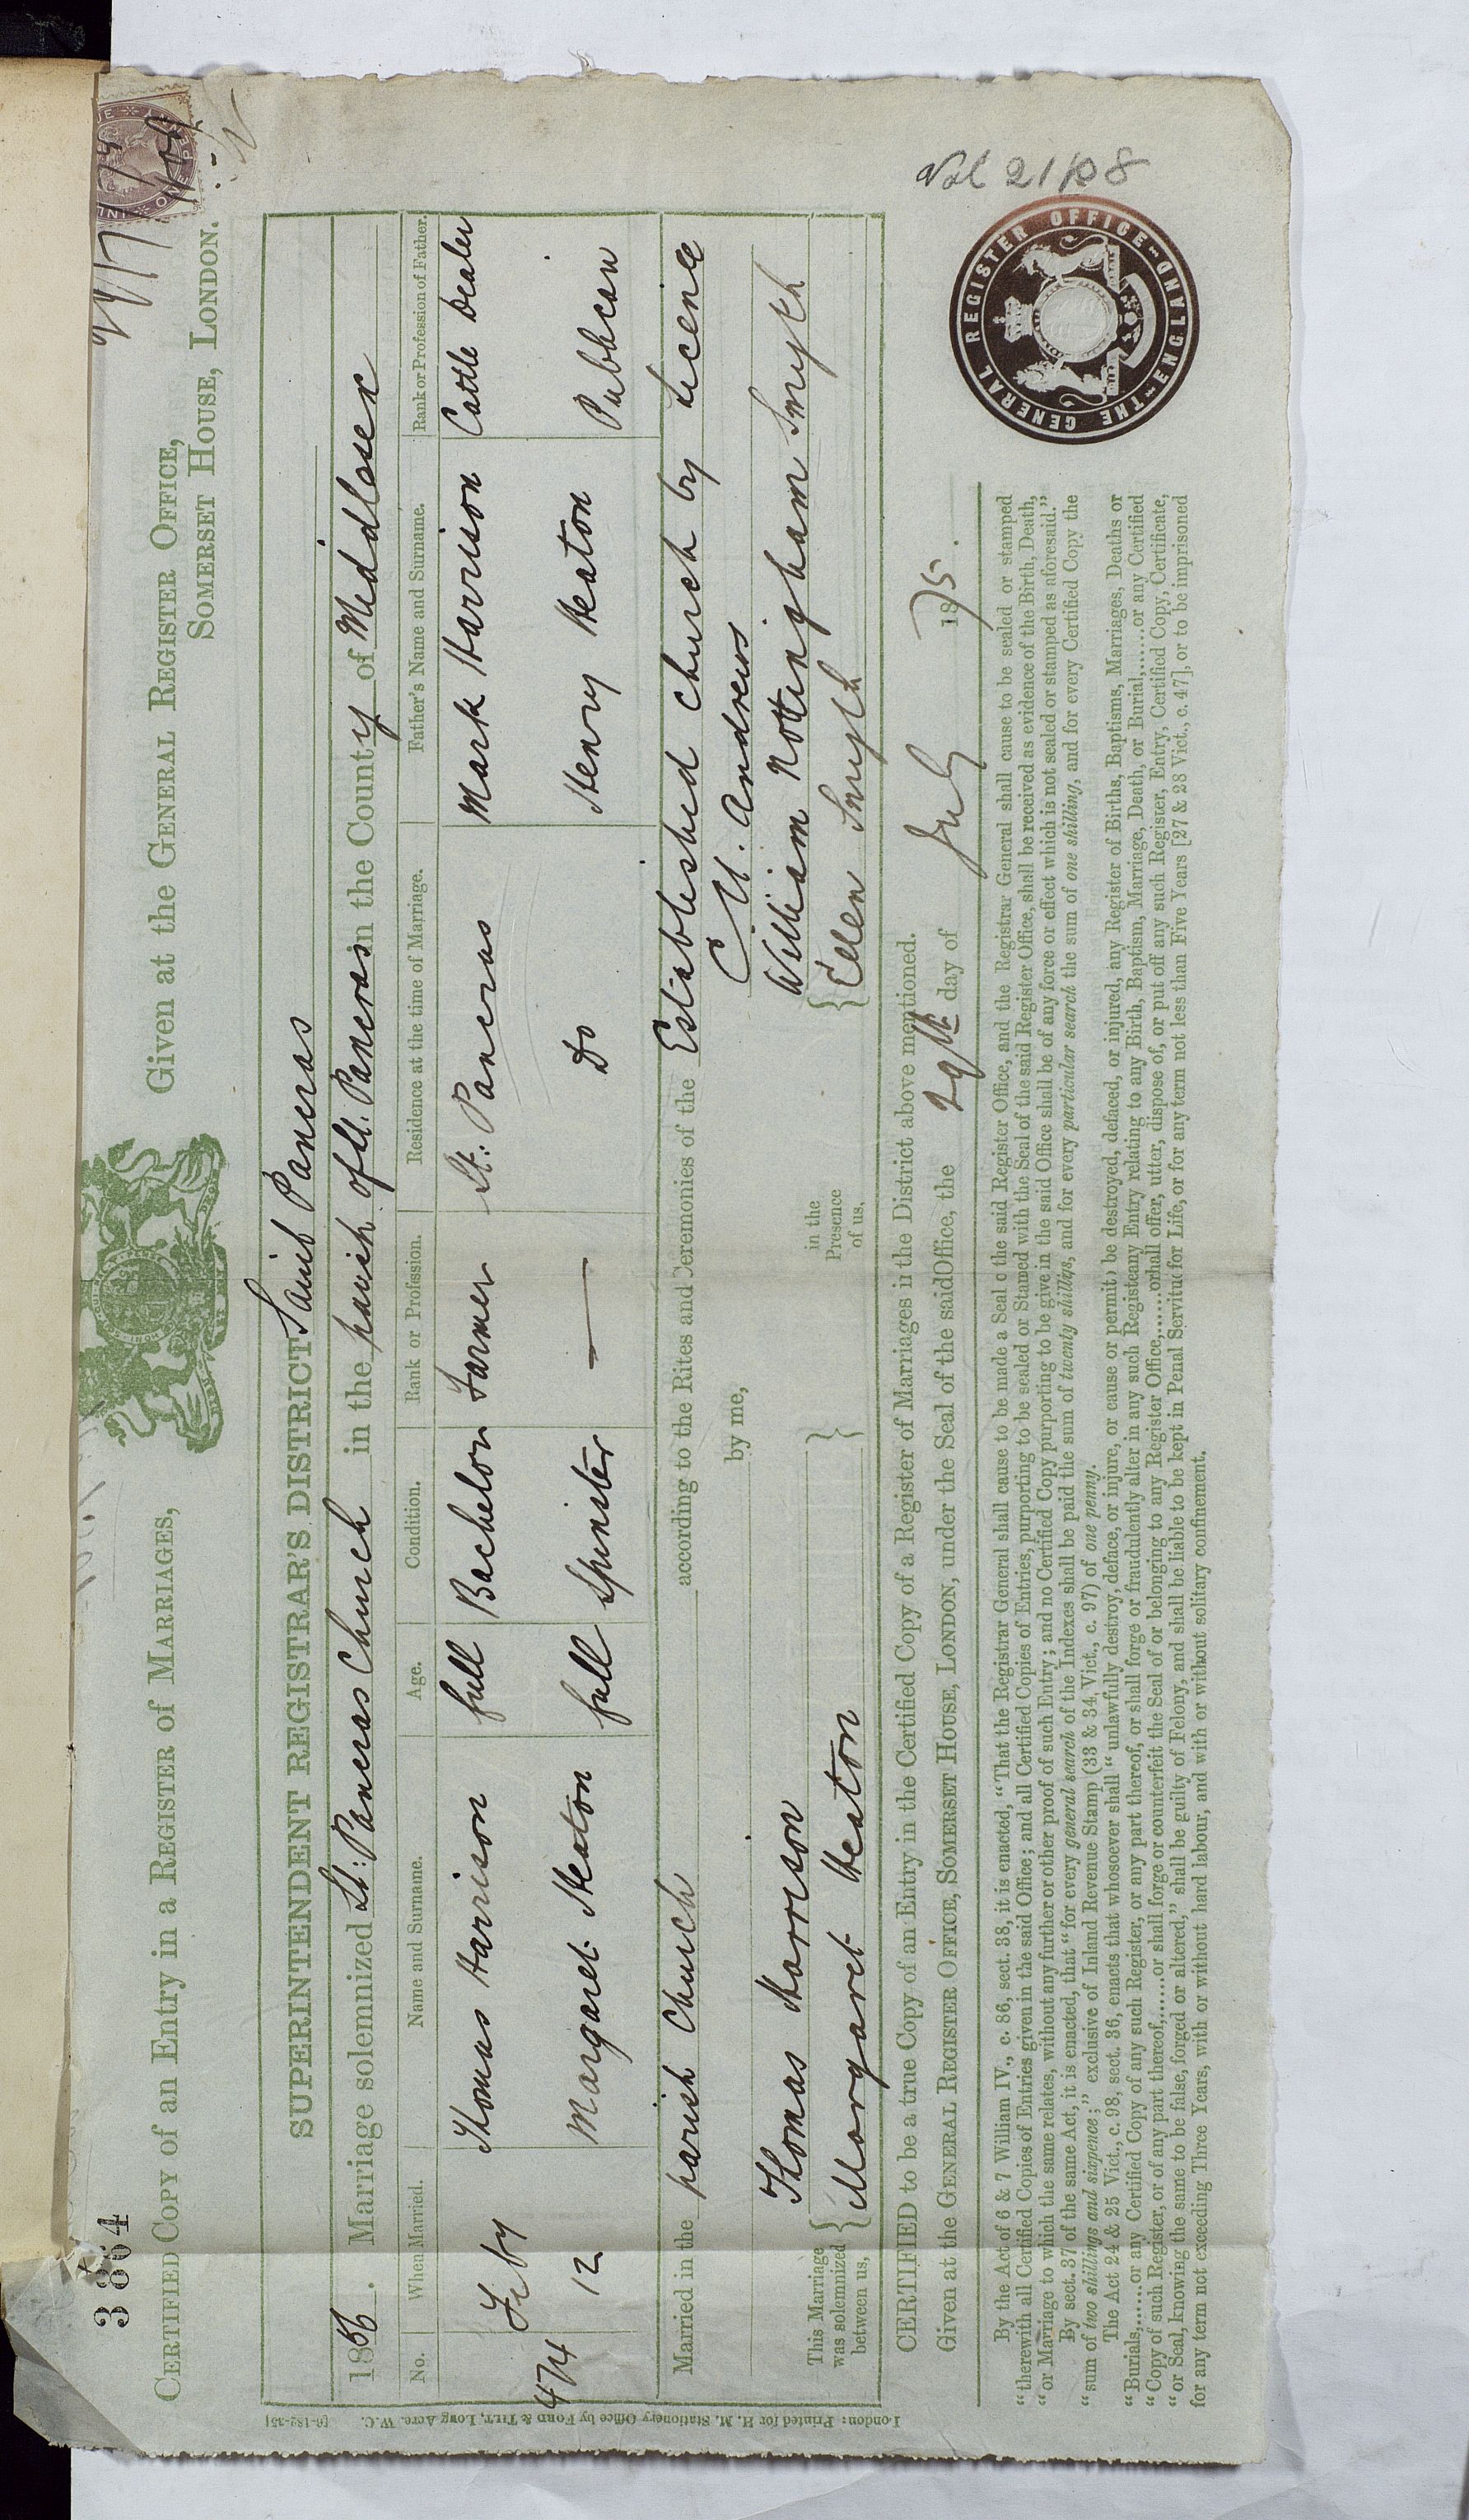 3864
CERTIFIED COPY of an Entry in a REGISTER of MARRIAGES,
Given at the GENERAL REGISTER OFFICE,
SOMERSET HOUSE, LONDON.
SUPERINTENDENT REGISTRAR'S DISTRICT Saint Pancras
1856. Marriage solemnized St: Pancras Church in the parish of St: Pancras in the County of Middlesex
No. When Married. Name and Surname. Age. Condition. Rank or Profession. Residence at the time of Marriage. Father's Name and Surname. Rank or Profession of Father.
474 Feby 12 Thomas Harrison full Bachelor Farmer St: Pancras Mark Harrison Cattle Dealer
Margaret Heaton full Spinster — Do Henry Heaton Publican
Married in the parish Church according to the Rites and Ceremonies of the Established Church by Licence
by me, C U. Andrews
This Marriage was solemnized between us, Thomas Harrison in the Presence of us, William Nottingham Smyth
Margaret Heaton Ellen Smyth
CERTIFIED to be a true Copy of an Entry in the Certified Copy of a Register of Marriages in the District above mentioned.
Given at the GENERAL REGISTER OFFICE, SOMERSET HOUSE, LONDON, under the Seal of the said Office, the 29th day of July 1875.
By the Act of 6 & 7 William IV., c. 86, sect. 38, it is enacted, "That the Registrar General shall cause to be made a Seal o the said Register Office, and the Registrar General shall cause to be sealed or stamped
"therewith all Certified Copies of Entries given in the said Office; and all Certified Copies of Entries, purporting to be sealed or Stamed with the Seal of the said Register Office, shall be received as evidence of the Birth, Death,
"or Marriage to which the same relates, without any further or other proof of such Entry; and no Certified Copy purporting to be give in the said Office shall be of any force or effect which is not sealed or stamped as aforesaid."
By sect. 37 of the same Act, it is enacted, that "for every general search of the Indexes shall be paid the sum of twenty shilligs, and for every particular search the sum of one shilling, and for every Certified Copy the
"sum of two shillings and sixpence;" exclusive of Inland Revenue Stamp (33 & 34, Vict., c. 97) of one penny.
The Act 24 & 25 Vict., c. 98, sect. 36, enacts that whosoever shall "unlawfully destroy, deface, or injure, or cause or permit to be destroyed, defaced, or injured, any Register of Births, Baptisms, Marriages, Deaths or
"Burials,......or any Certified Copy of any such Register, or any part thereof, or shall forge or fraudulently alter in any such Register any Entry relating to any Birth, Baptism, Marriage, Death, or Burial,......or any Certified
"Copy of such Register, or of any part thereof,......or shall forge or counterfeit the Seal of or belonging to any Register Office,......or shall offer, utter, dispose of, or put off any such Register, Entry, Certified Copy, Certificate,
"or Seal, knowing the same to be false, forged or altered," shall be guilty of Felony, and shall be liable to be kept in Penal Servitude for Life, or for any term not less than Five Years [27 & 28 Vict., c. 47], or to be imprisoned
for any term not exceeding Three Years, with or without hard labour, and with or without solitary confinement.
GENERAL REGISTER OFFICE THE ENGLAND
Vol 21/08
London: Printed for H. M. Stationery Office by FORD & TILT, Long Acre. W.C.